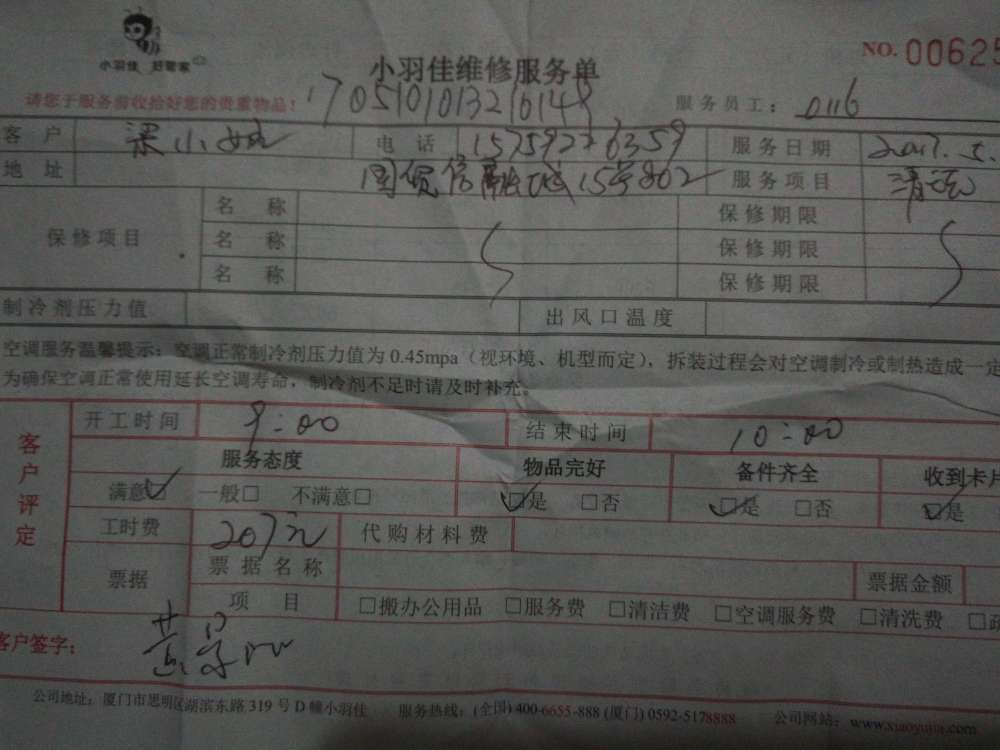 小羽佳 好管家
小羽佳维修服务单
NO. 00625
请您于服务前收拾好您的贵重物品!
服务员工: 0116
客 户 梁小姐 电 话 服务日期 2017.5.
地 址 国贸信融城15号802 服务项目 清洗
保修项目
名 称 保修期限
名 称 保修期限
名 称 保修期限
制冷剂压力值 出风口温度
空调服务温馨提示: 空调正常制冷剂压力值为 0.45mpa(视环境、机型而定), 拆装过程会对空调制冷或制热造成一定
为确保空调正常使用延长空调寿命, 制冷剂不足时请及时补充。
客户评定
开工时间 9:00 结束时间 10:00
服务态度 物品完好 备件齐全 收到卡片
满意 一般□ 不满意□ □是 □否 □是 □否 □是
工时费 207元 代购材料费
票据 票据名称 票据金额
项 目 □搬办公用品 □服务费 □清洁费 □空调服务费 □清洗费
客户签字:
公司地址: 厦门市思明区湖滨东路 319 号 D 幢小羽佳 服务热线: (全国) 400-6655-888 (厦门) 0592-5178888 公司网站: www.xiaoyujia.com